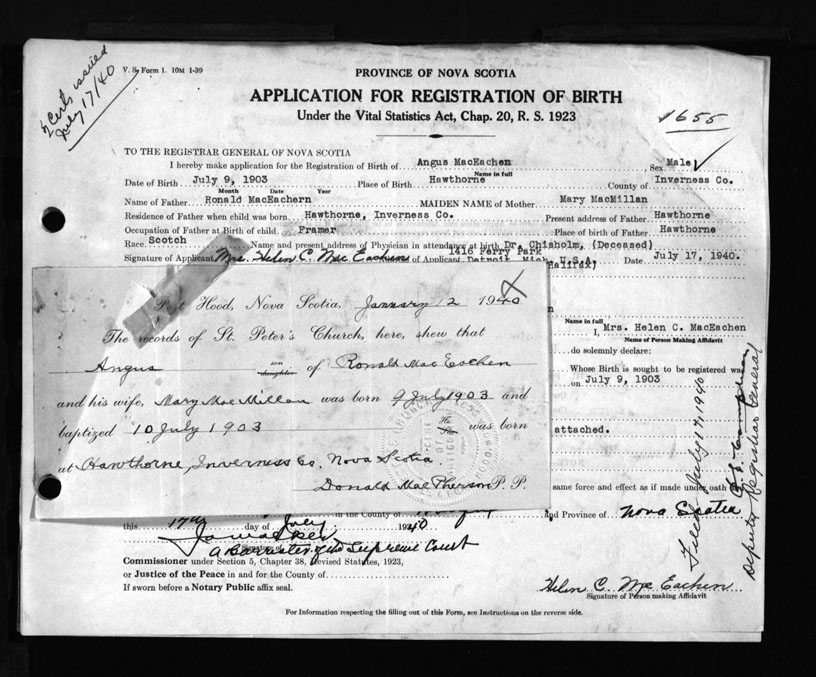 2 Certs issued
July 17/40
V. S. Form 1. 10M 1-39
PROVINCE OF NOVA SCOTIA
APPLICATION FOR REGISTRATION OF BIRTH
Under the Vital Statistics Act, Chap. 20, R. S. 1923
1655
TO THE REGISTRAR GENERAL OF NOVA SCOTIA
I hereby make application for the Registration of Birth of Angus MacEachen Sex Male
Name in full
Date of Birth July 9, 1903 Place of Birth Hawthorne County of Inverness Co.
Month Date Year
Name of Father Ronald MacEachern MAIDEN NAME of Mother Mary MacMillan
Residence of Father when child was born Hawthorne, Inverness Co. Present address of Father Hawthorne
Occupation of Father at Birth of child Framer Place of birth of Father Hawthorne
Race Scotch Name and present address of Physician in attendance at birth Dr. Chisholm, (Deceased)
1416 Ferry Park
Signature of Applicant Mrs. Helen C. MacEachen of Applicant Detroit, Mich. U.S.A. Date July 17, 1940.
Halifax)
Port Hood, Nova Scotia, January 2 1940
The records of St. Peter's Church, here, shew that
Angus son daughter of Ronald MacEachen
and his wife, Mary MacMillan was born 9 July 1903 and
baptized 10 July 1903 He She was born
at Hawthorne, Inverness Co. Nova Scotia.
Donald MacPherson P. P.
Name in full
I, Mrs. Helen C. MacEachen
Name of Person Making Affidavit
do solemnly declare:
Whose Birth is sought to be registered was
on July 9, 1903
attached.
same force and effect as if made under oath
in the County of and Province of Nova Scotia
this 17th day of July 1940
A Barrister of the Supreme Court
Commissioner under Section 5, Chapter 38, Revised Statutes, 1923,
or Justice of the Peace in and for the County of
If sworn before a Notary Public affix seal.
Helen C. MacEachen
Signature of Person making Affidavit
For Information respecting the filling out of this Form, see Instructions on the reverse side.
Filed July 17, 1940
Deputy Registrar General